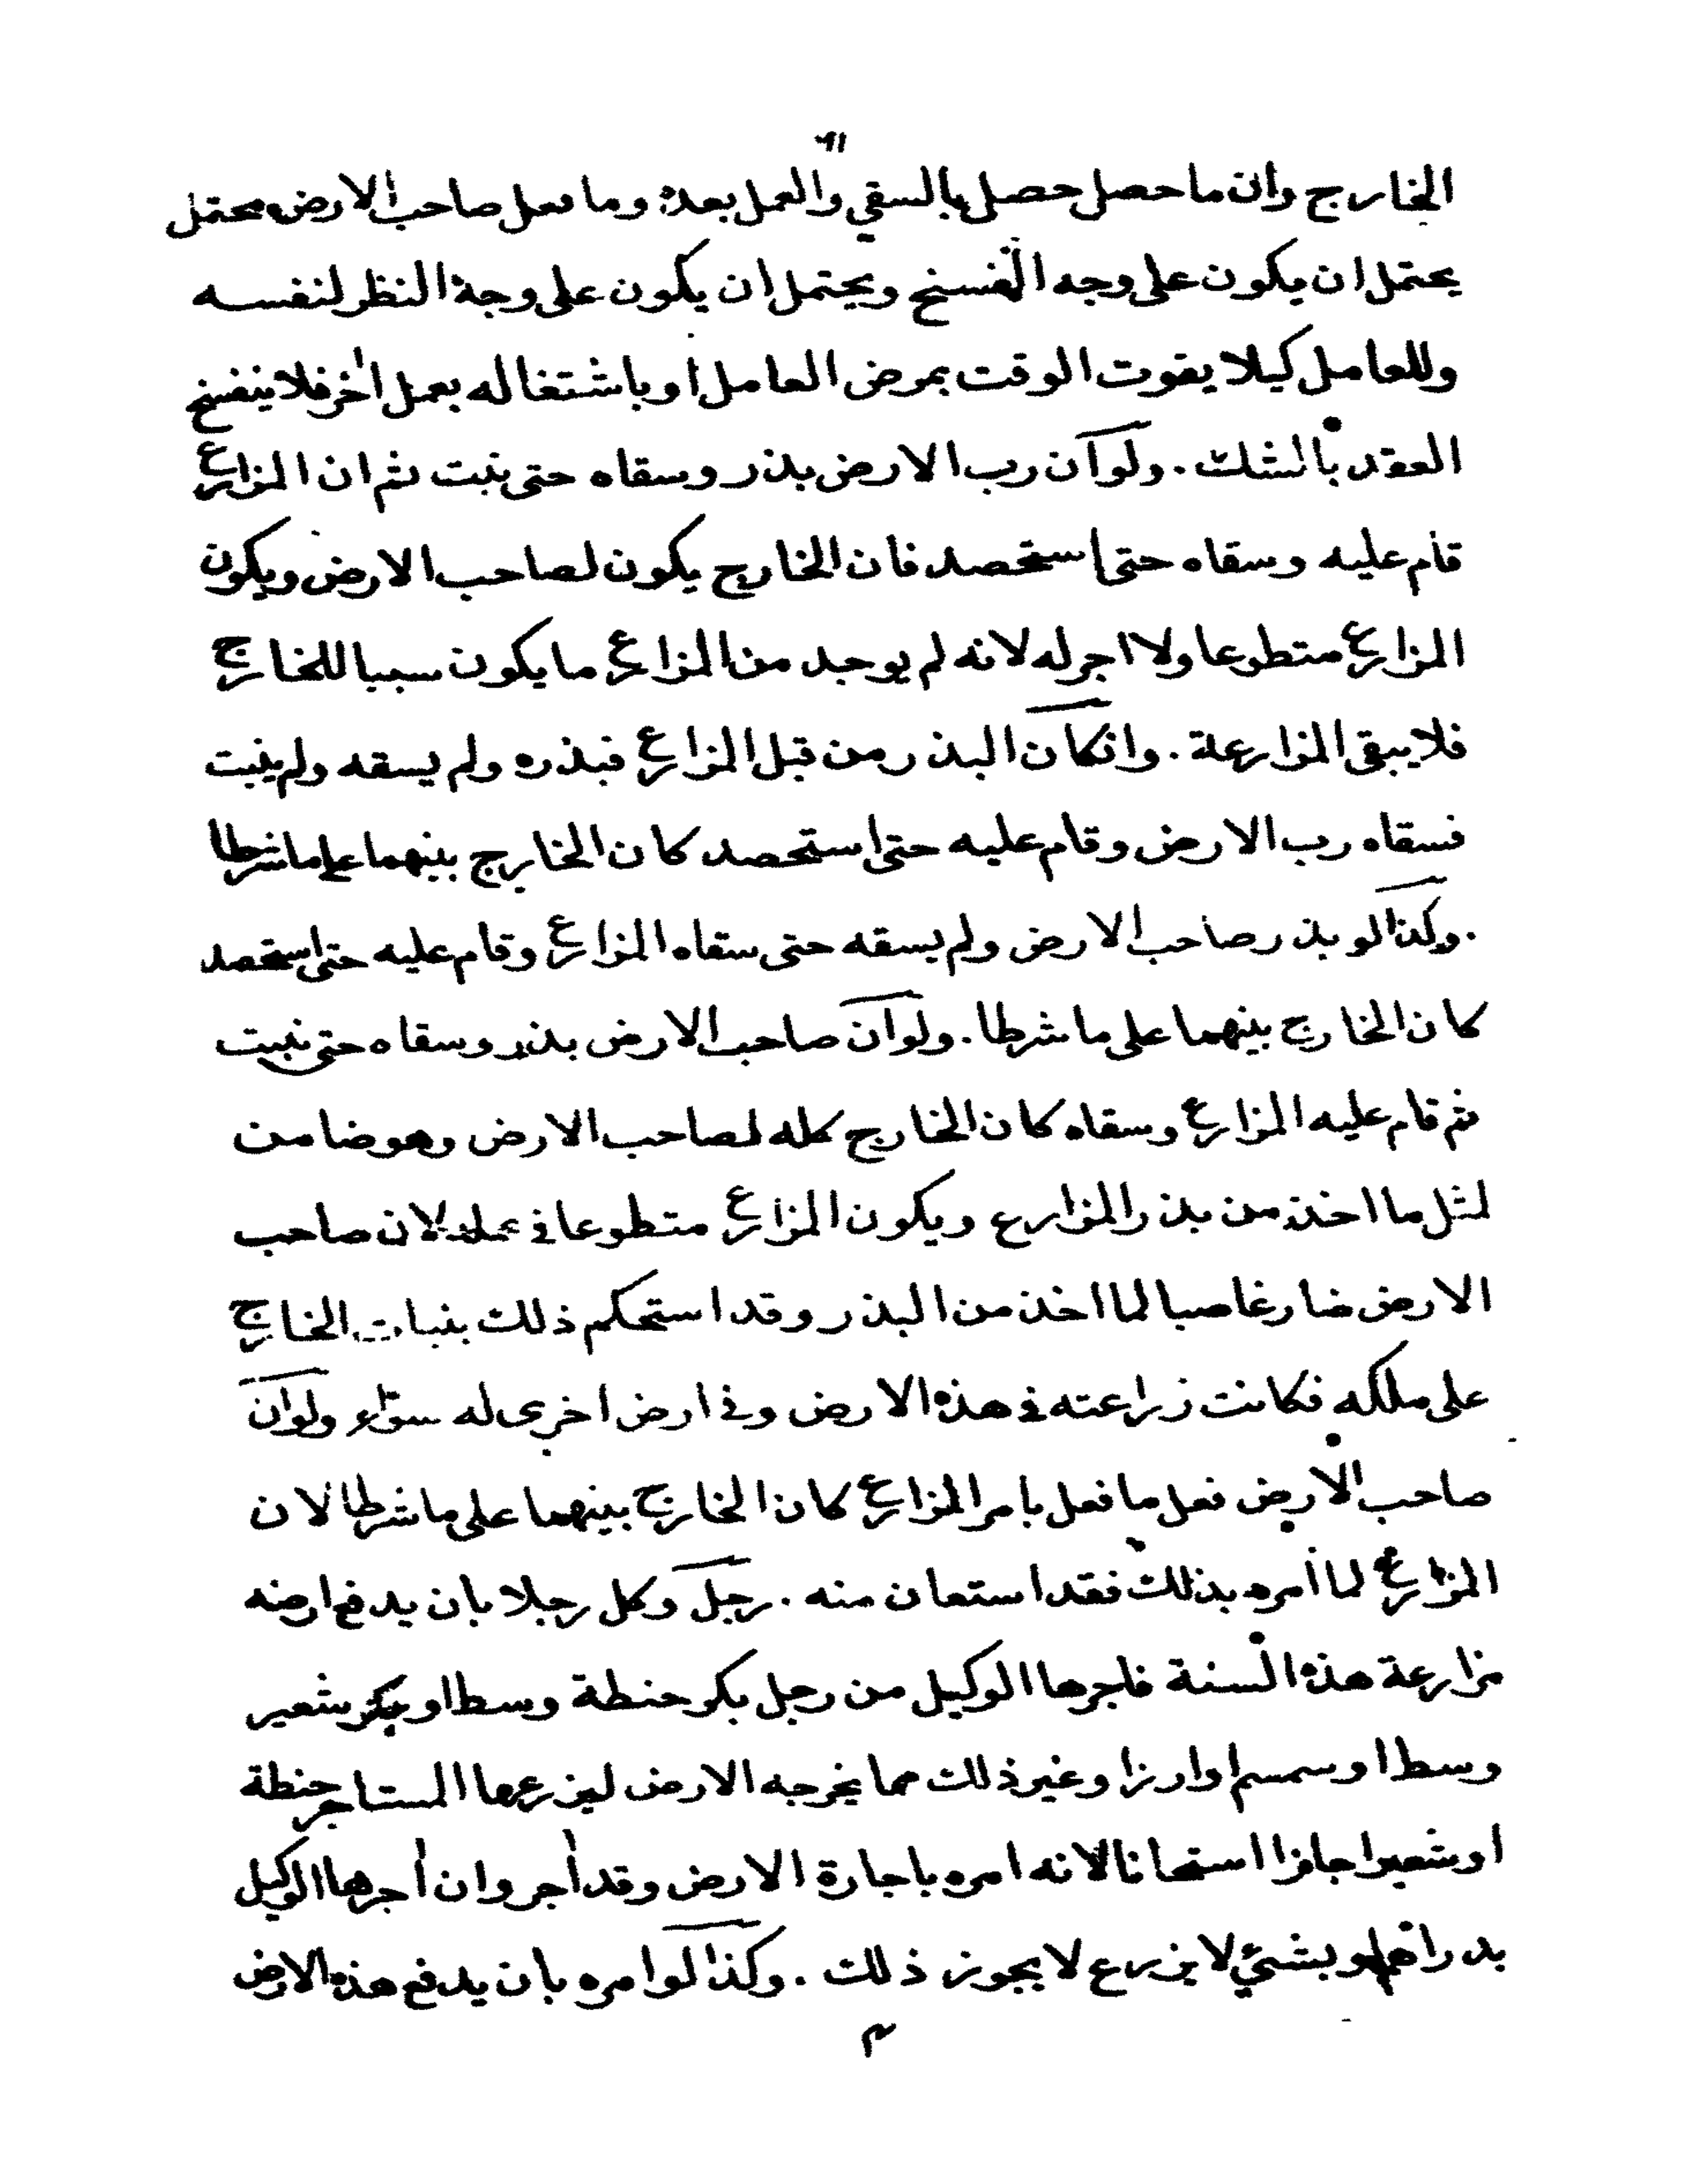 الخارج وان ما حصل حصل بالسقي والعمل بعده وما فعل صاحب الارض محتمل
يحتمل ان يكون على وجه الفسخ ويحتمل ان يكون على وجه النظر لنفسه
وللعامل كيلا يفوت الوقت بمرض العامل او باشتغاله بعمل اخر فلا ينفسخ
العقد بالشك . ولو ان رب الارض بذر وسقاه حتى نبت ثم ان المزارع
قام عليه وسقاه حتى استحصد فان الخارج يكون لصاحب الارض ويكون
المزارع متطوعا ولا اجر له لانه لم يوجد من المزارع ما يكون سببا للخارج
فلا يبقى المزارعة . وان كان البذر من قبل المزارع فبذره ولم يسقه ولم ينبت
فسقاه رب الارض وقام عليه حتى استحصد كان الخارج بينهما على ما شرطا
. وكذا لو بذر صاحب الارض ولم يسقه حتى سقاه المزارع وقام عليه حتى استحصد
كان الخارج بينهما على ما شرطا . ولو ان صاحب الارض بذر وسقاه حتى نبت
ثم قام عليه المزارع وسقاه كان الخارج كله لصاحب الارض وهو ضامن
لمثل ما اخذ من بذر المزارع ويكون المزارع متطوعا في عمله لان صاحب
الارض صار غاصبا لما اخذ من البذر وقد استحكم ذلك بنبات الخارج
على ملكه فكانت زراعته في هذه الارض وفي ارض اخرى له سواء ولو ان
صاحب الارض فعل ما فعل بامر المزارع كان الخارج بينهما على ما شرطا لان
المزارع لما أمره بذلك فقد استعان منه . رجل وكل رجلا بان يدفع ارضه
مزارعة هذه السنة فاجرها الوكيل من رجل بكر حنطة وسط او بكر شعير
وسط او سمسم او ارز او غير ذلك مما يخرجه الارض ليزرعها المستاجر حنطة
او شعيرا جاز استحسانا لانه امره باجارة الارض وقد أجر وان أجرها الوكيل
بدراهم او بشئي لا يزرع لا يجوز ذلك . وكذا لو امره بان يدفع هذه الارض